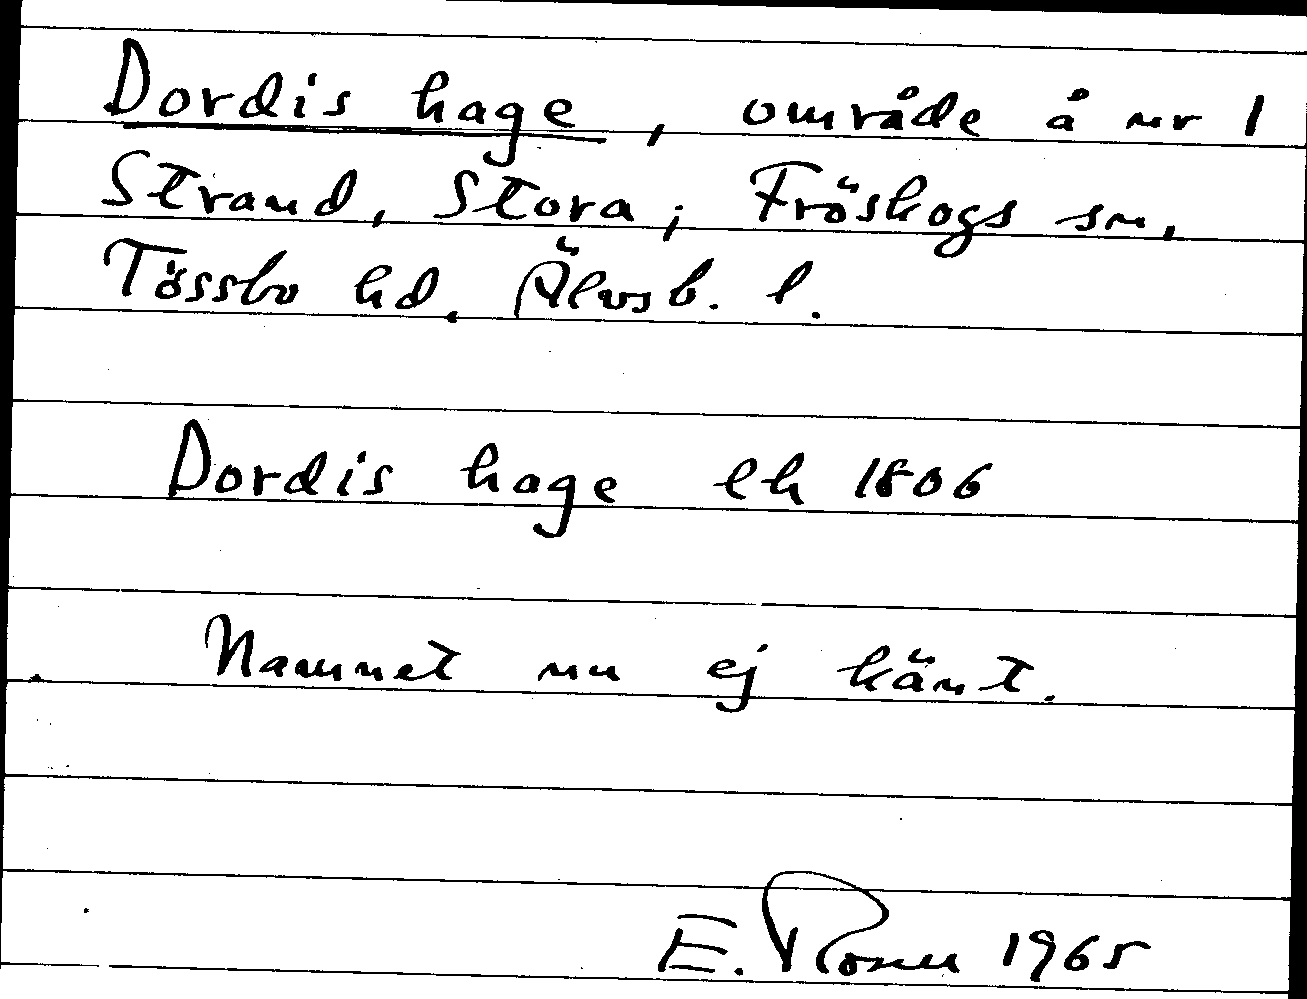 Dordis hage, område å nr 1
Strand, Stora; Fröskogs sn,
Tössbo hd. Älvsb. l.
Dordis hage lh 1806
Namnet nu ej känt.
E. 1965